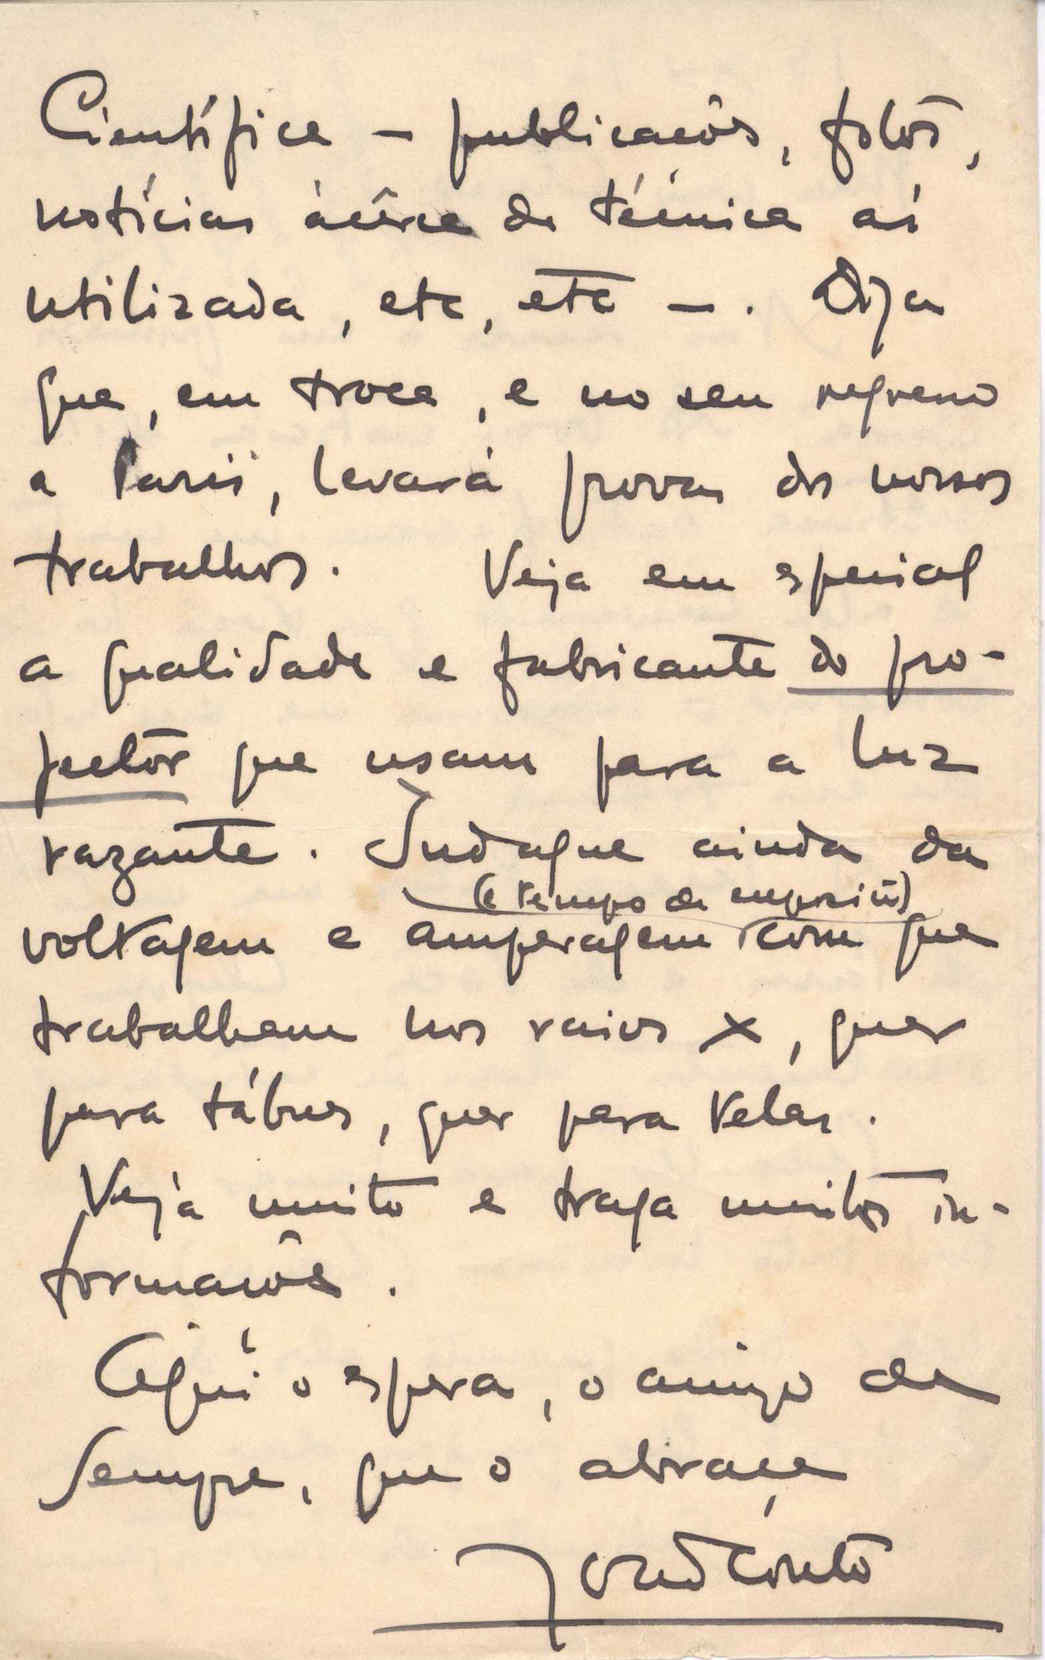 Científica – publicações, fotos,
notícias àcêrca da técnica aí
utilizada, etc, etc –. Diga
que, em troca, e no seu regresso
a Paris, levará provas dos nossos
trabalhos. Veja em especial
a qualidade e fabricante do pro-
jector que usam para a luz
razante. Indague ainda da
(e tempo de exposição)
voltagem e amperagem com que
trabalham nos raios X, quer
para tábuas, quer para telas.
Veja muito e traga muitas in-
formações.
Aqui o espera, o amigo de
sempre, que o abraça